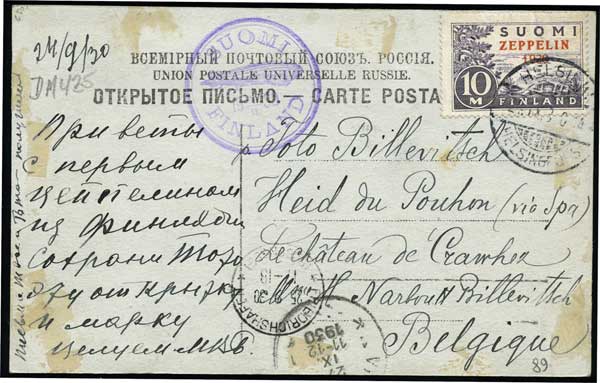 24/9/30
DM425
ВСЕМІРНЫЙ ПОЧТОВЫЙ СОЮЗЪ. РОССІЯ.
UNION POSTALE UNIVERSELLE RUSSIE.
ОТКРЫТОЕ ПИСЬМО. — CARTE POSTA
SUOMI
FINLAND
SUOMI
ZEPPELIN
1930
10
M
FINLAND
HELSIN
HELSINGFORS
Приветы
с первым
цеппелином
из Финляндии
сохрани
эту открытку
и марку
целуем
Toto Billevitsch
Heid du Pouhon (via Spa)
Le château de Crawhez
Narbout Billevitsch
Belgique
FRIEDRICHSHAFEN
25.9.30
IX.
1930
11-12
89